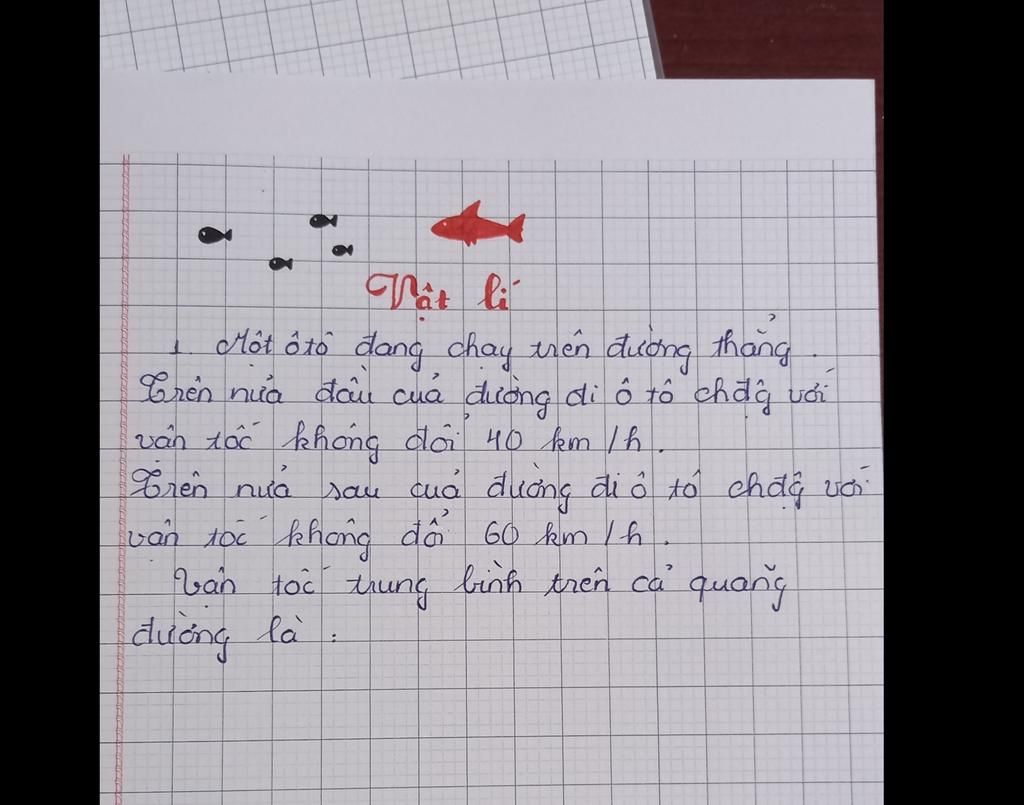 Vật lí
1. Một ôtô đang chạy trên đường thẳng.
Trên nửa đầu của đường đi ô tô chạy với
vận tốc không đổi 40 km/h.
Trên nửa sau của đường đi ô tô chạy với
vận tốc không đổi 60 km/h.
Vận tốc trung bình trên cả quãng
đường là :